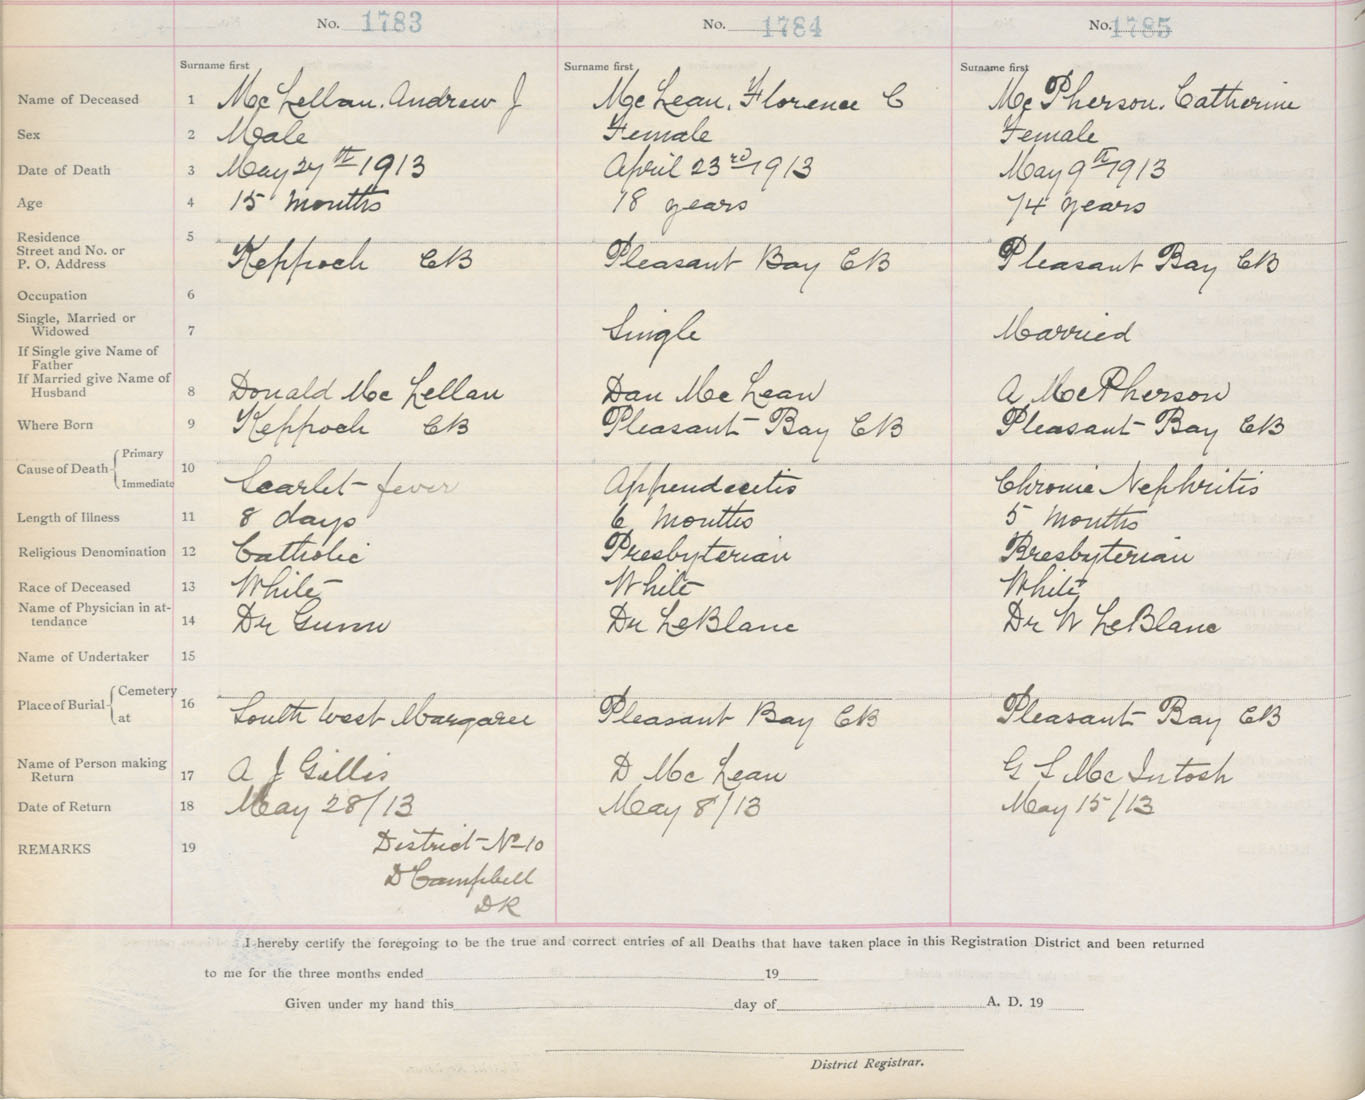 No. 1783 No. 1784 No. 1785
Surname first Surname first Surname first
Name of Deceased 1 McLellan, Andrew J McLean, Florence C McPherson, Catherine
Sex 2 Male Female Female
Date of Death 3 May 27th 1913 April 23rd 1913 May 9th 1913
Age 4 15 months 18 years 74 years
Residence 5
Street and No. or
P. O. Address Keppoch CB Pleasant Bay CB Pleasant Bay CB
Occupation 6
Single, Married or
Widowed 7 Single Married
If Single give Name of
Father
If Married give Name of
Husband 8 Donald McLellan Dan McLean A McPherson
Where Born 9 Keppoch CB Pleasant Bay CB Pleasant Bay CB
Cause of Death { Primary
Immediate 10 Scarlet fever Appendecitis Chronic Nephritis
Length of Illness 11 8 days 6 months 5 months
Religious Denomination 12 Catholic Presbyterian Presbyterian
Race of Deceased 13 White White White
Name of Physician in at-
tendance 14 Dr Gunn Dr LeBlanc Dr W LeBlanc
Name of Undertaker 15
Place of Burial { Cemetery
at 16 South West Margaree Pleasant Bay CB Pleasant Bay CB
Name of Person making
Return 17 A J Gillis D McLean G S McIntosh
Date of Return 18 May 28/13 May 8/13 May 15/13
REMARKS 19 District No 10
D Campbell
DR
I hereby certify the foregoing to be the true and correct entries of all Deaths that have taken place in this Registration District and been returned
to me for the three months ended 19
Given under my hand this day of A. D. 19
District Registrar.